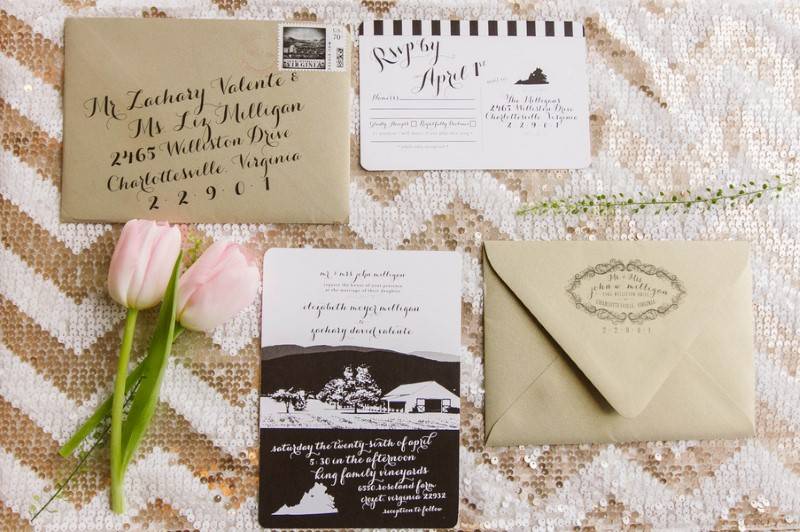 Mr Zachary Valente &
Ms. Liz Milligan
2465 Williston Drive
Charlottesville, Virginia
2·2·9·0·1
VIRGINIA
Rsvp by
April 1st
The Milligans
2465 Williston Drive
Charlottesville, Virginia
2 2 9 0 1
mr & mrs john milligan
request the honor of your presence
at the marriage of their daughter
elizabeth meyer milligan
&
zachary david valente
saturday the twenty-sixth of april
5:30 in the afternoon
king family vineyards
6550 roseland farm
crozet, virginia 22932
reception to follow
Mr. & Mrs.
john w milligan
2465 Williston Drive
Charlottesville, Virginia
2·2·9·0·1